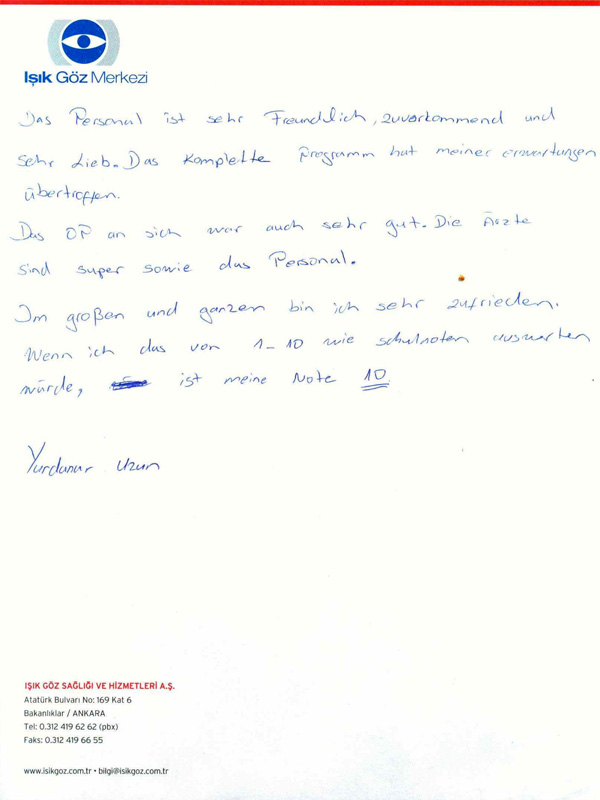 Işık Göz Merkezi
Das Personal ist sehr Freundlich, zuvorkommend und
sehr Lieb. Das Komplette Programm hat meiner erwartungen
übertroffen.
Das OP an sich war auch sehr gut. Die Ärzte
sind super sowie das Personal.
Im großen und ganzen bin ich sehr zufrieden.
Wenn ich das von 1-10 wie schulnoten auswerten
würde, ist meine Note 10.
Yurdanur Uzun
IŞIK GÖZ SAĞLIĞI VE HİZMETLERİ A.Ş.
Atatürk Bulvarı No: 169 Kat 6
Bakanlıklar / ANKARA
Tel: 0.312 419 62 62 (pbx)
Faks: 0.312 419 66 55
www.isikgoz.com.tr • bilgi@isikgoz.com.tr